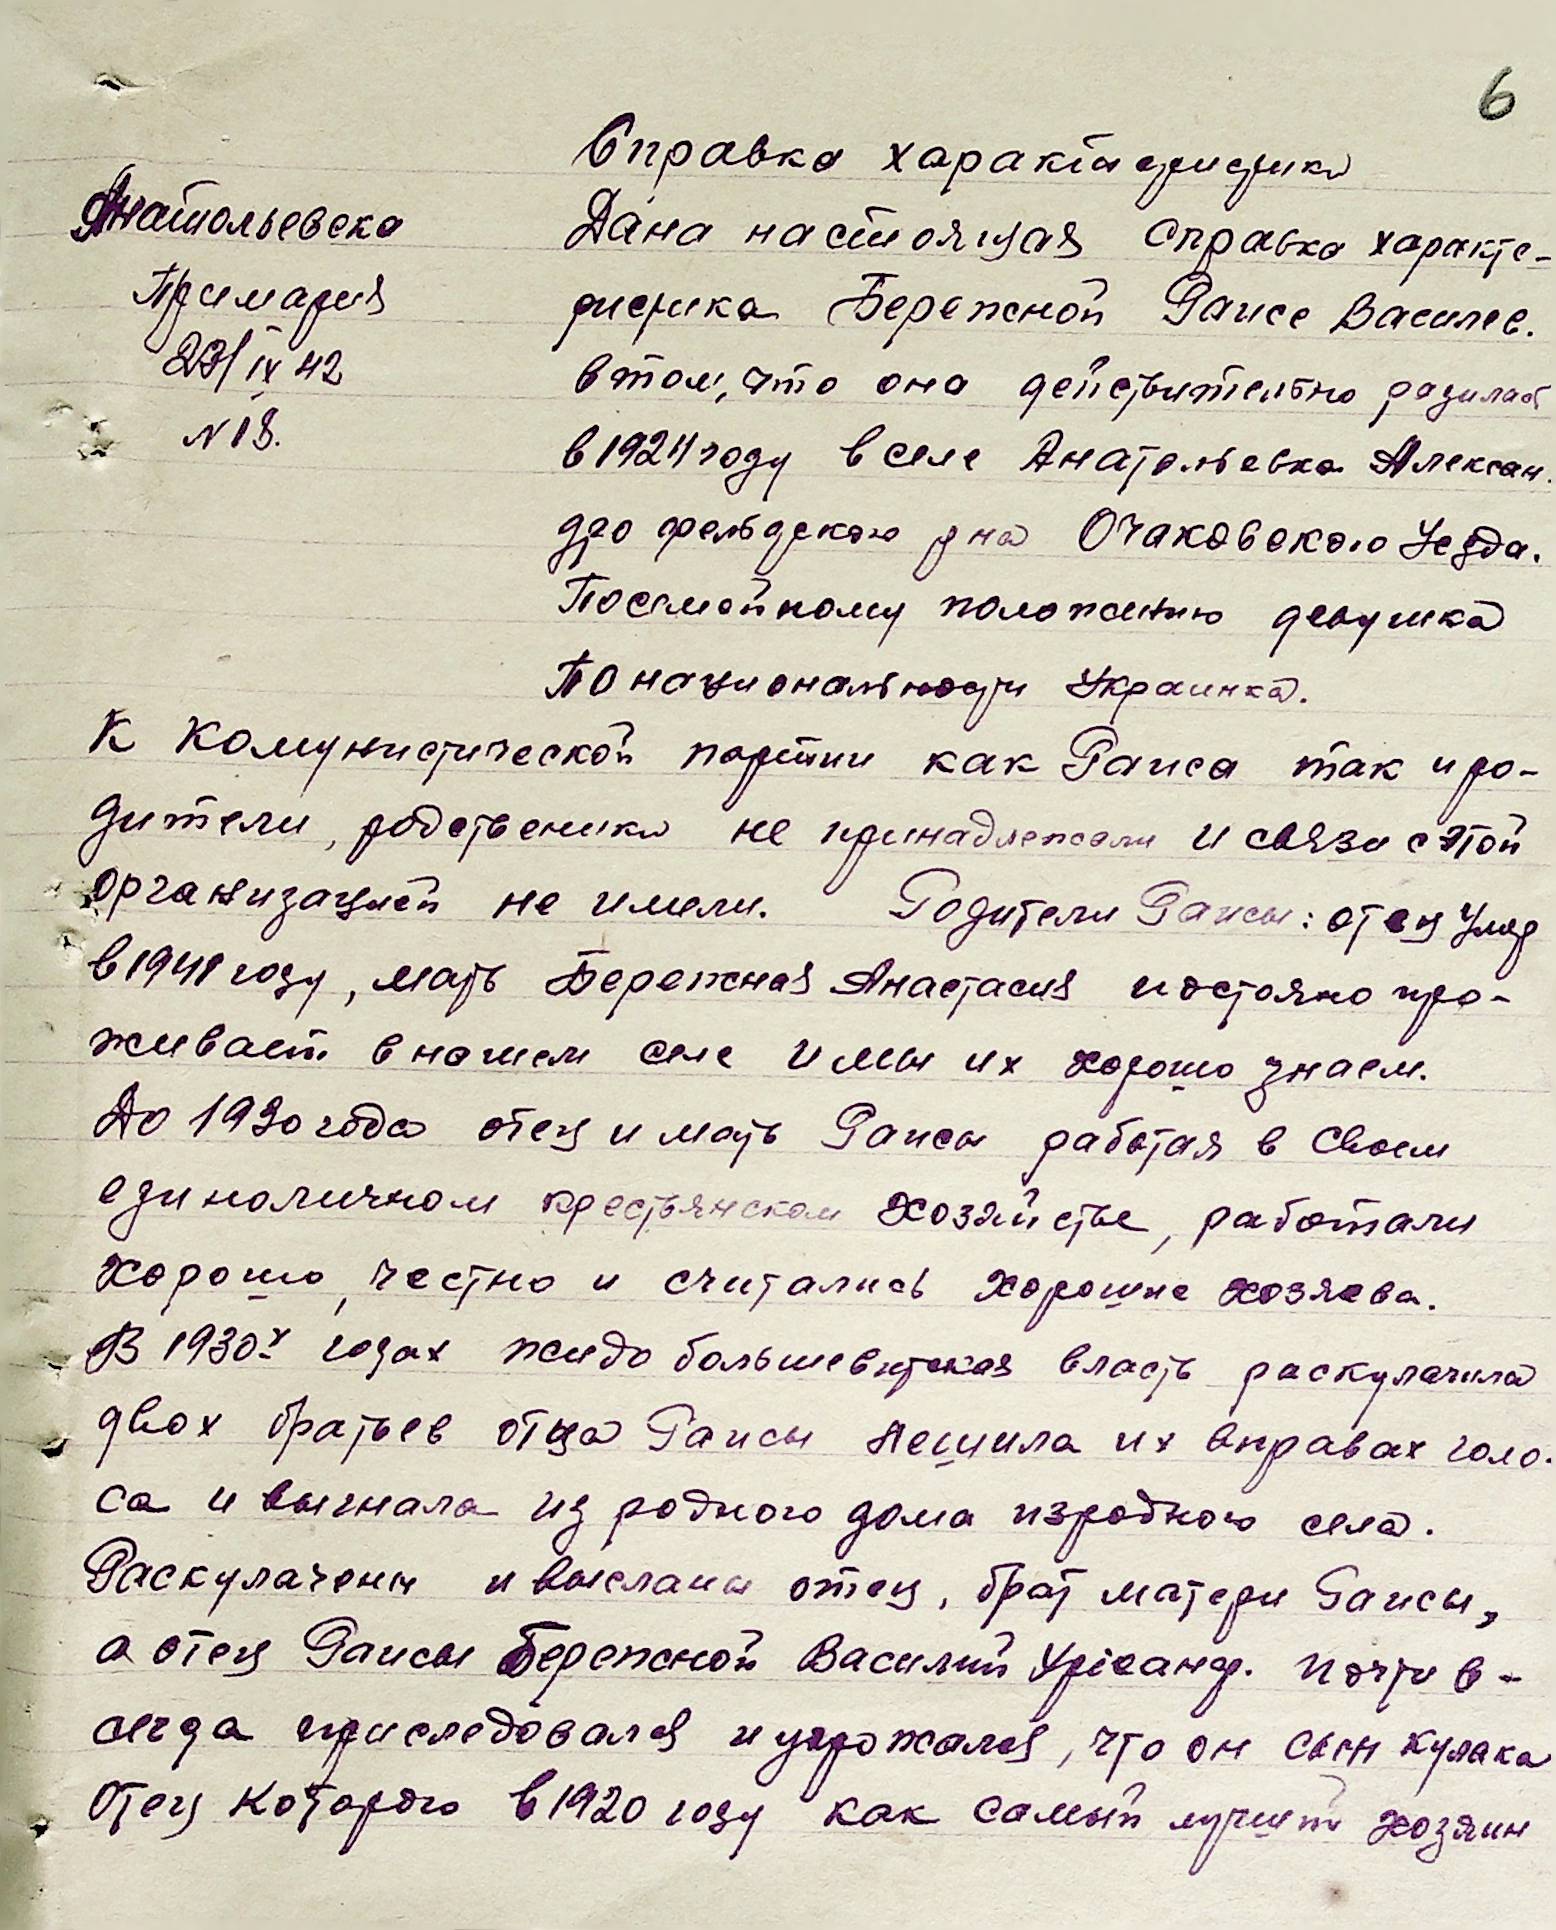 6
Справка характеристика
Анатольевска
Примария
29/IX 42
N 18.
Дана настоящая справка характе-
ристика Бережной Раисе Василев.
в том, что она действительно родилась
в 1924 году в селе Анатольевка Алексан.
дро фельдского рна Очаковского Уезда.
Посемейному положению девушка
По национальности Украинка.
К комунистической партии как Раиса так и ро-
дители, родственики не принадлежали и связи с этой
организацией не имели. Родители Раисы: отец умер
в 1941 году, мать Бережная Анастасия постояно про-
живает в нашем селе и мы их хорошо знаем.
До 1930 года отец и мать Раисы работая в своем
единоличном крестьянском хозяйстве, работали
хорошо, честно и считались хорошие хозяева.
В 1930х годах жидо большевитская власть раскулачила
двох братьев отца Раисы лешила их в правах голо-
са и выгнала из родного дома из родного села.
Раскулачены и высланы отец, брат матери Раисы,
а отец Раисы Бережной Василий почти в-
сегда приследовался и угрожался, что он сын кулака
отец которого в 1920 году как самый лучший хозяин